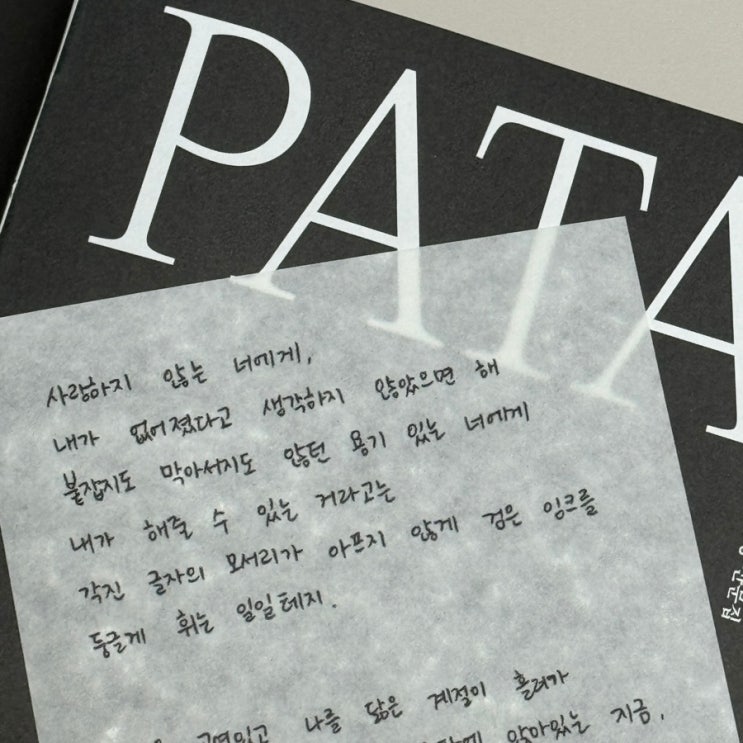 PATA
사랑하지 않는 너에게,
내가 없어졌다고 생각하지 않았으면 해
붙잡지도 막아서지도 않던 용기 있는 너에게
내가 해줄 수 있는 거라고는
각진 글자의 모서리가 아프지 않게 검은 잉크를
둥글게 휘는 일일테지.
나를 닮은 계절이 흘러가
앉아있는 지금,